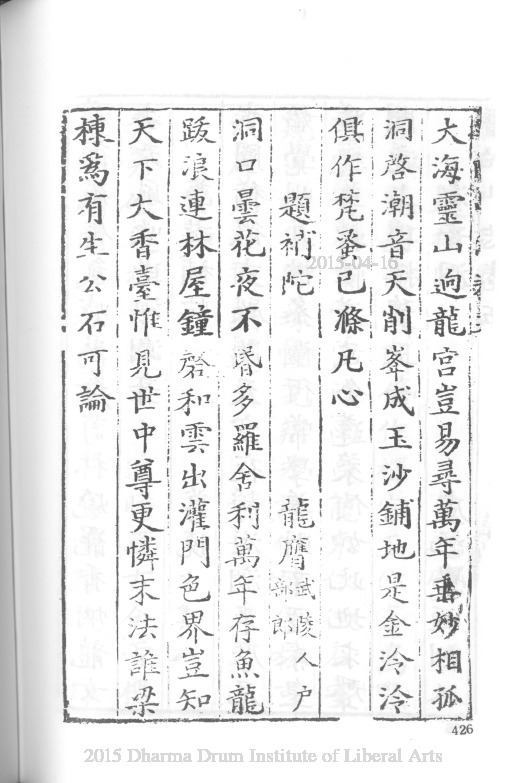 大海靈山逈龍宮豈易尋萬年垂妙相孤
洞啓潮音天削峯成玉沙鋪地是金泠泠
俱作梵蚤已滌凡心
題補陀 龍膺 武陵人戶部郎
洞口曇花夜不昬多羅舍利萬年存魚龍
跋浪連林屋鐘磬和雲出灌門色界豈知
天下大香臺惟見世中尊更憐末法誰梁
棟爲有生公石可論
426
2013-04-16
2015 Dharma Drum Institute of Liberal Arts